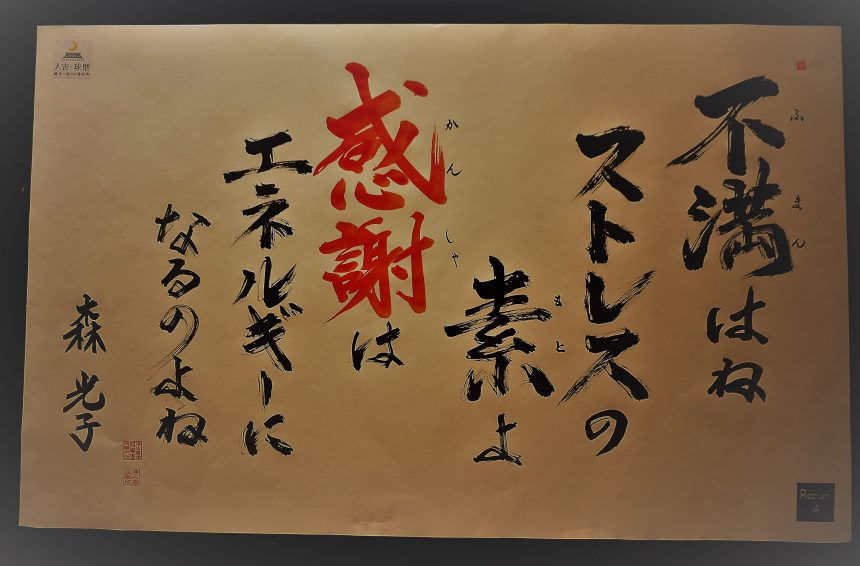 不満はね
ふまん
ストレスの
素よ
もと
感謝は
かんしゃ
エネルギーに
なるのよね
森光子
人吉・球磨
Reborn